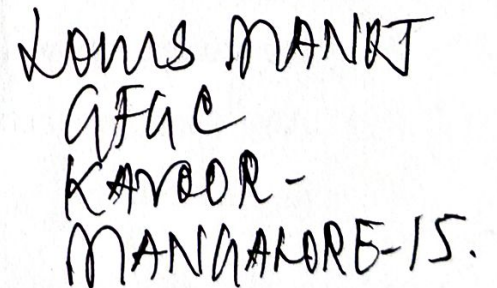 LOUIS MANOJ
GFGC
KAVOOR-
MANGALORE-15.